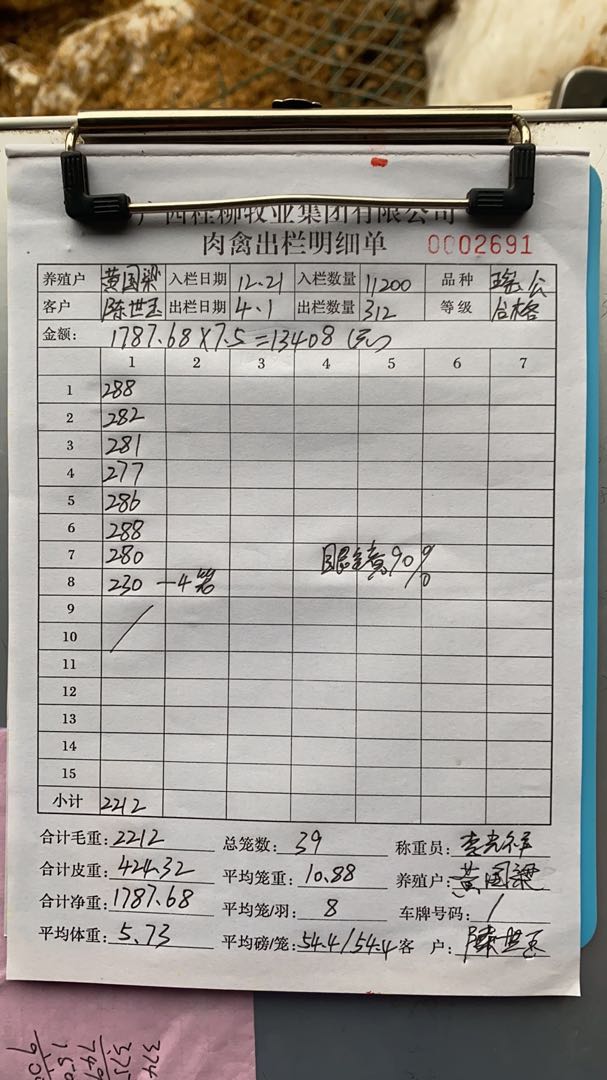 广西桂柳牧业集团有限公司
肉禽出栏明细单 0002691
养殖户 黄国梁 入栏日期 12.21 入栏数量 11200 品种 瑶公
客户 陈世玉 出栏日期 4.1 出栏数量 312 等级 合格
金额: 1787.68×7.5=13408(元)
1 2 3 4 5 6 7
1 288
2 282
3 281
4 277
5 286
6 288
7 280 眼镜90%
8 230 一4笼
9
10
11
12
13
14
15
小计 2212
合计毛重: 2212 总笼数: 39 称重员:
合计皮重: 424.32 平均笼重: 10.88 养殖户: 黄国梁
合计净重: 1787.68 平均笼/羽: 8 车牌号码: /
平均体重: 5.73 平均磅/笼: 54.4/54.4 客 户: 陈世玉